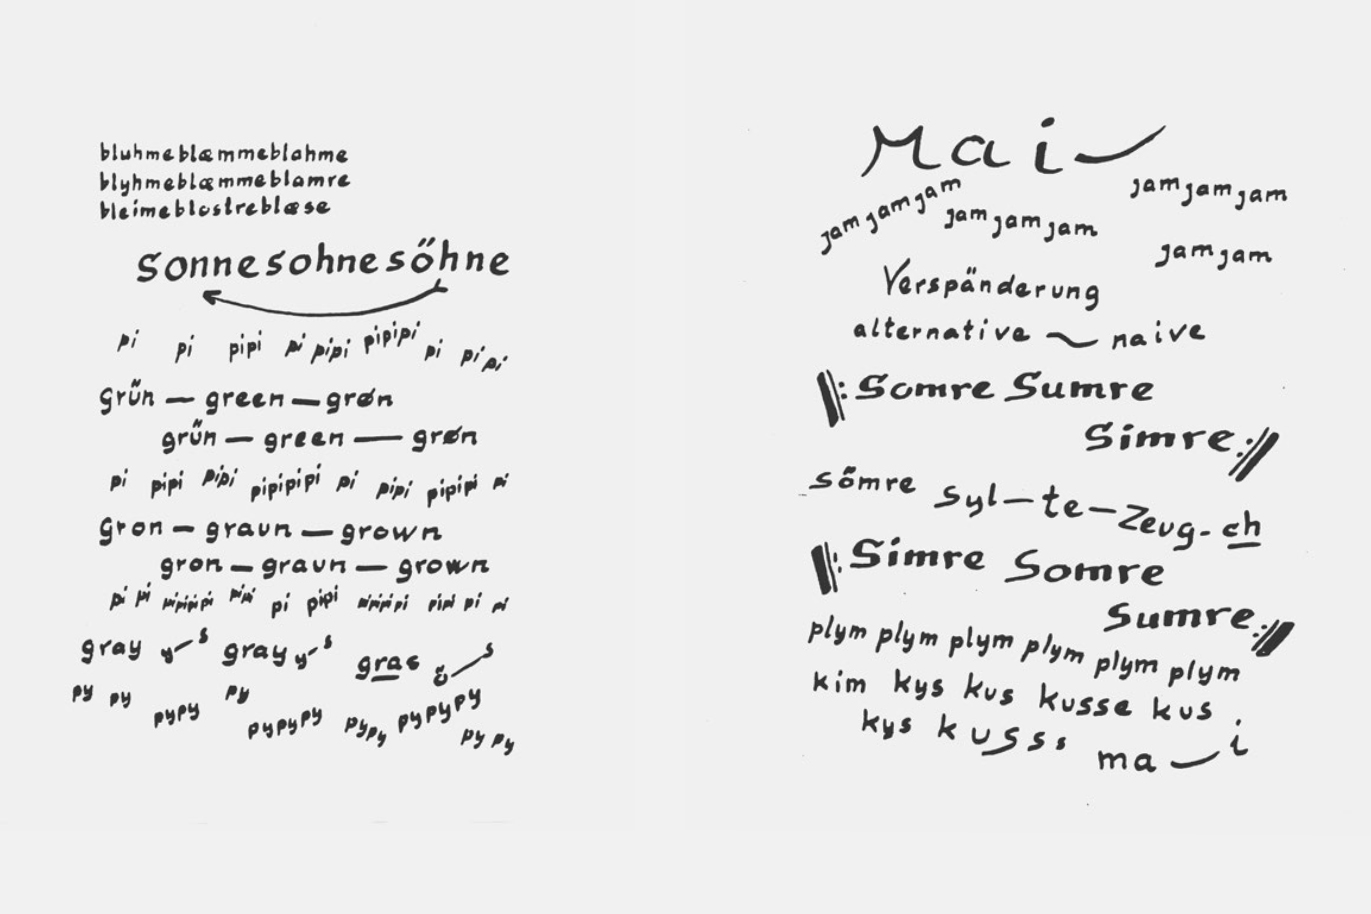 bluhmeblæmmeblahme
blyhmeblæmmeblamre
bleimeblostreblæse
sonnesohnesőhne
pi pi pipi pi pipi pipipi pi pipi
grűn — green — grøn
grűn — green — grøn
pi pipi pipi pipipipi pi pipi pipipi pi
gron — graun — grown
gron — graun — grown
pi pi pipipipi pipi pi pipi pipipipi pipi pi pi
gray y—s gray y–s gras — s
py py pypy py pypypy pypy pypypy pypy
Mai
jamjamjam jamjamjam jamjamjam jamjam
Verspänderung
alternative ~ naive
‖: Somre Sumre
Simre :‖
sőmre Syl—te—Zeug-ch
‖: Simre Somre
Sumre :‖
plym plym plym plym plym plym
kim kys kus kusse kus
kys kusss ma—i